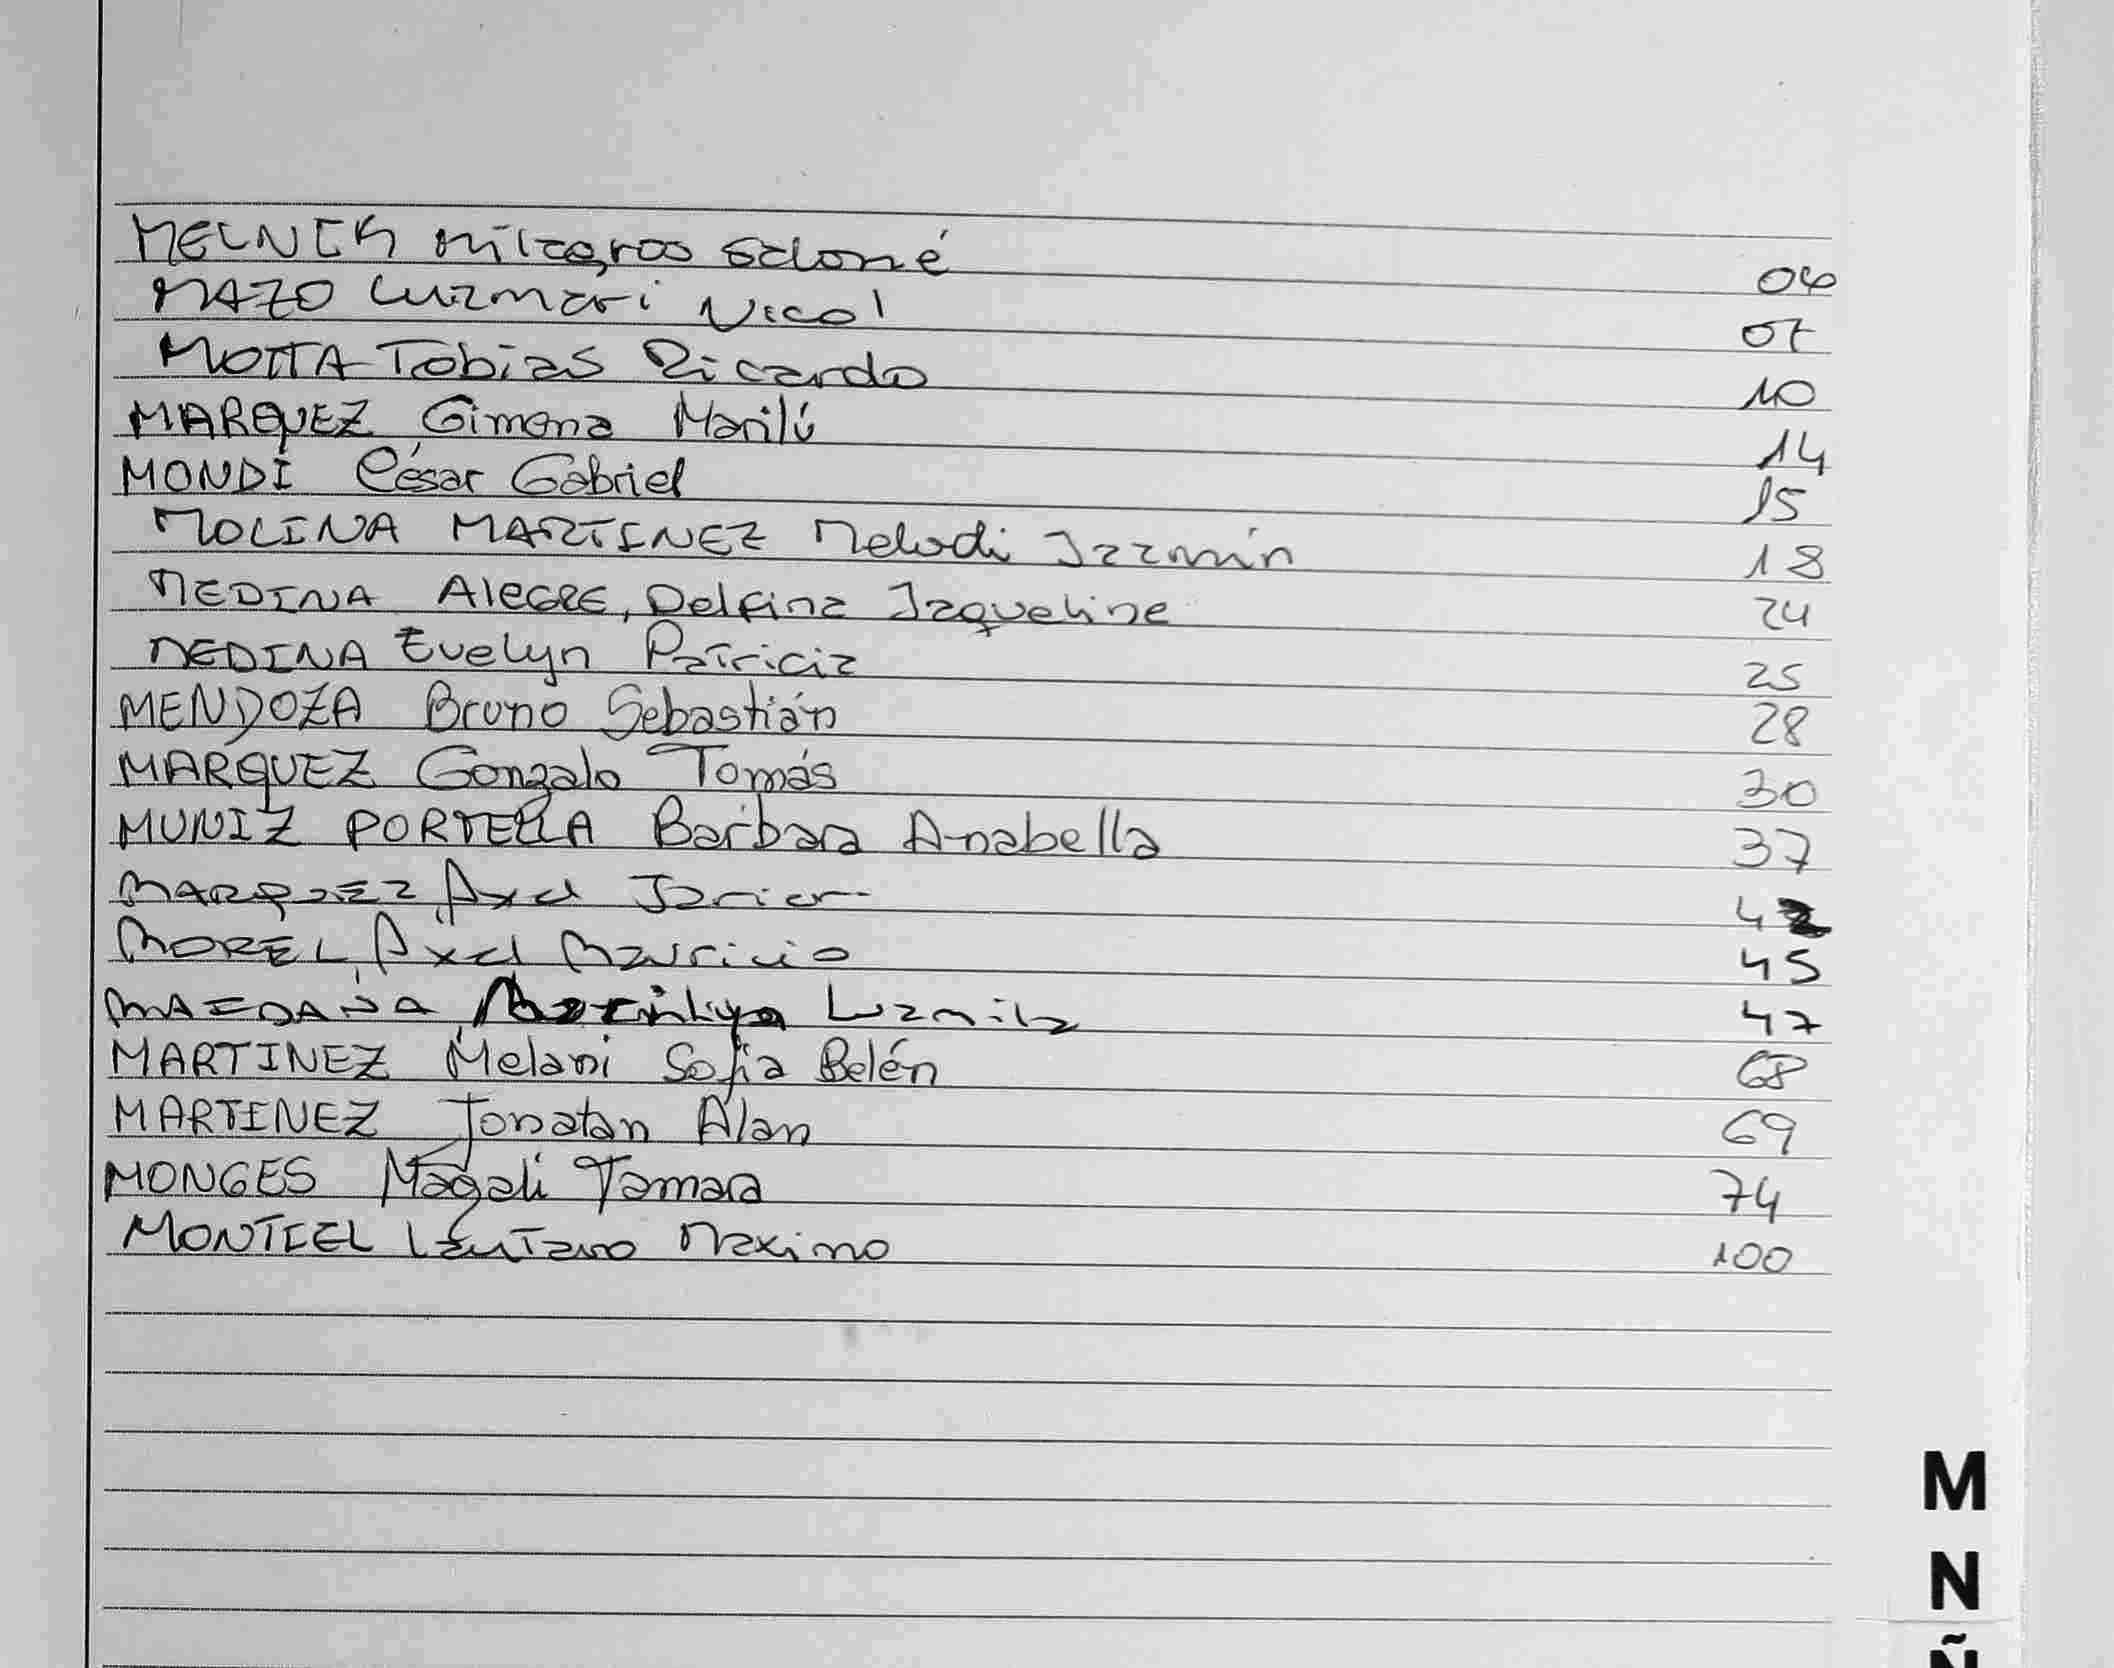 MELNIK Milagros Salomé 06
MAZO Luzmari Nicol 07
MOTTA Tobias Ricardo 10
MARQUEZ, Gimena Marilú 14
MONDÍ César Gabriel 15
MOLINA MARTINEZ Melodi Jazmín 18
MEDINA AlEGRE, Delfina Jaqueline 24
MEDINA Evelyn Patricia 25
MENDOZA Bruno Sebastián 28
MARQUEZ Gonzalo Tomás 30
MUNIZ PORTELLA Barbara Anabella 37
MARQUEZ, Axel 42
MOREL, Axel Mauricio 45
MAIDANA, Luzmila 47
MARTINEZ Melani Sofia Belén 68
MARTINEZ Jonatan Alan 69
MONGES Magali Tamara 74
MONTIEL Lautaro Maximo 100
M
N
Ñ